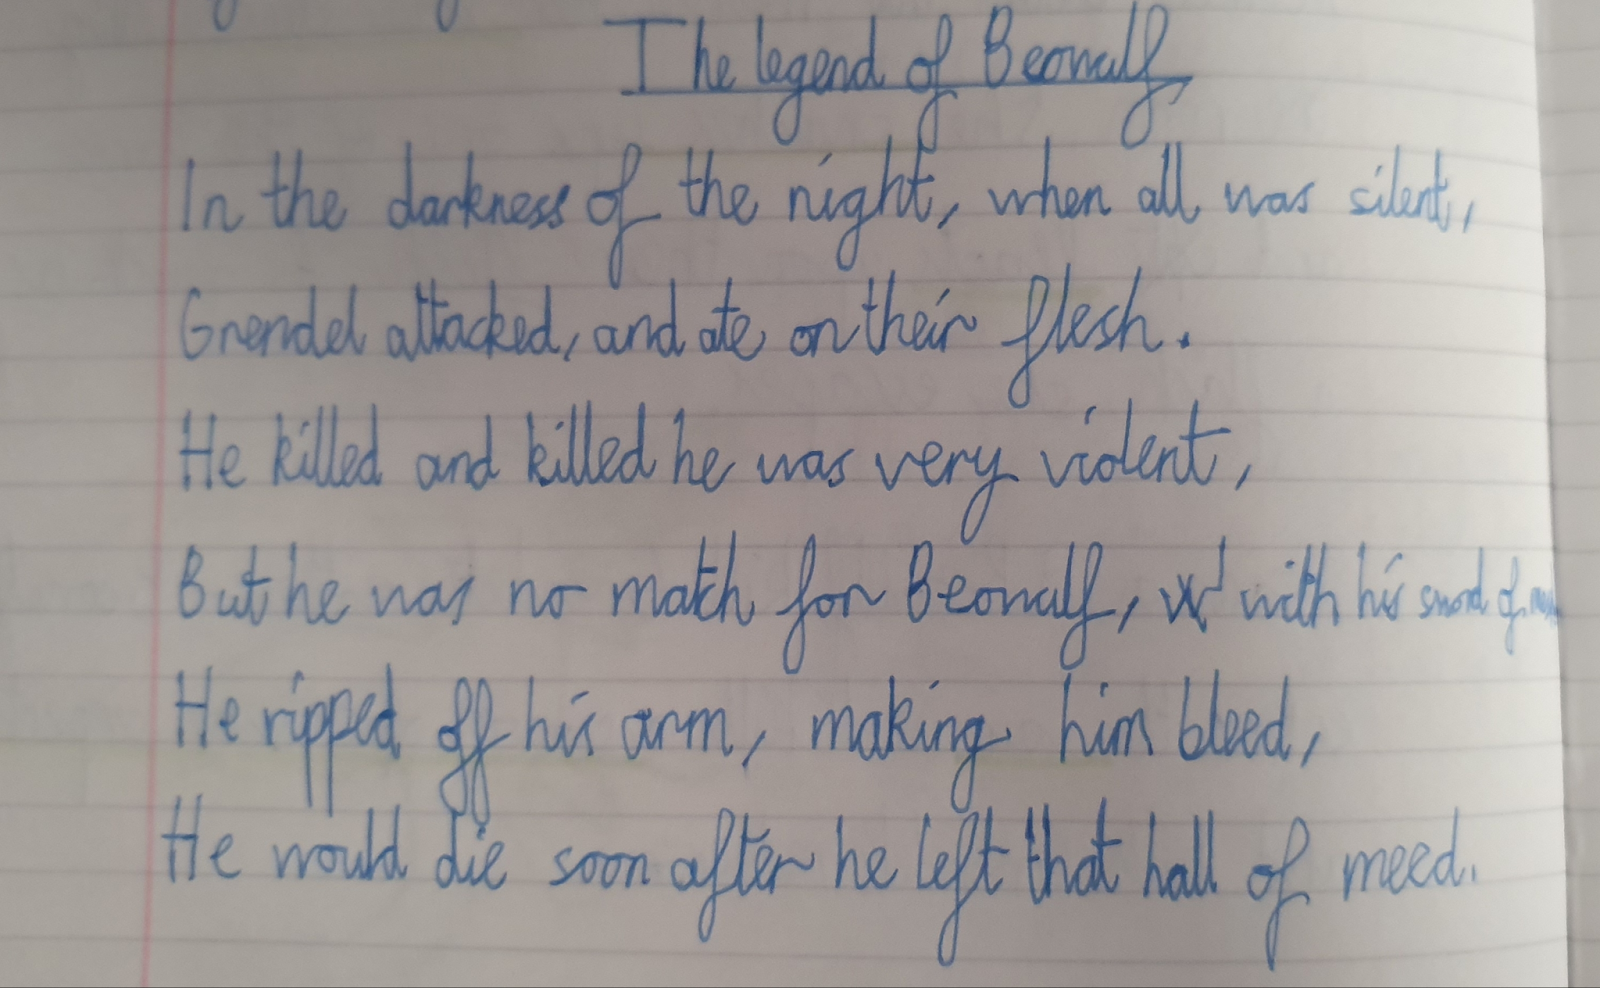 The legend of Beowulf
In the darkness of the night, when all was silent,
Grendel attacked, and ate on their flesh.
He killed and killed he was very violent,
But he was no match for Beowulf, with his sword of
He ripped off his arm, making him bleed,
He would die soon after he left that hall of meed.